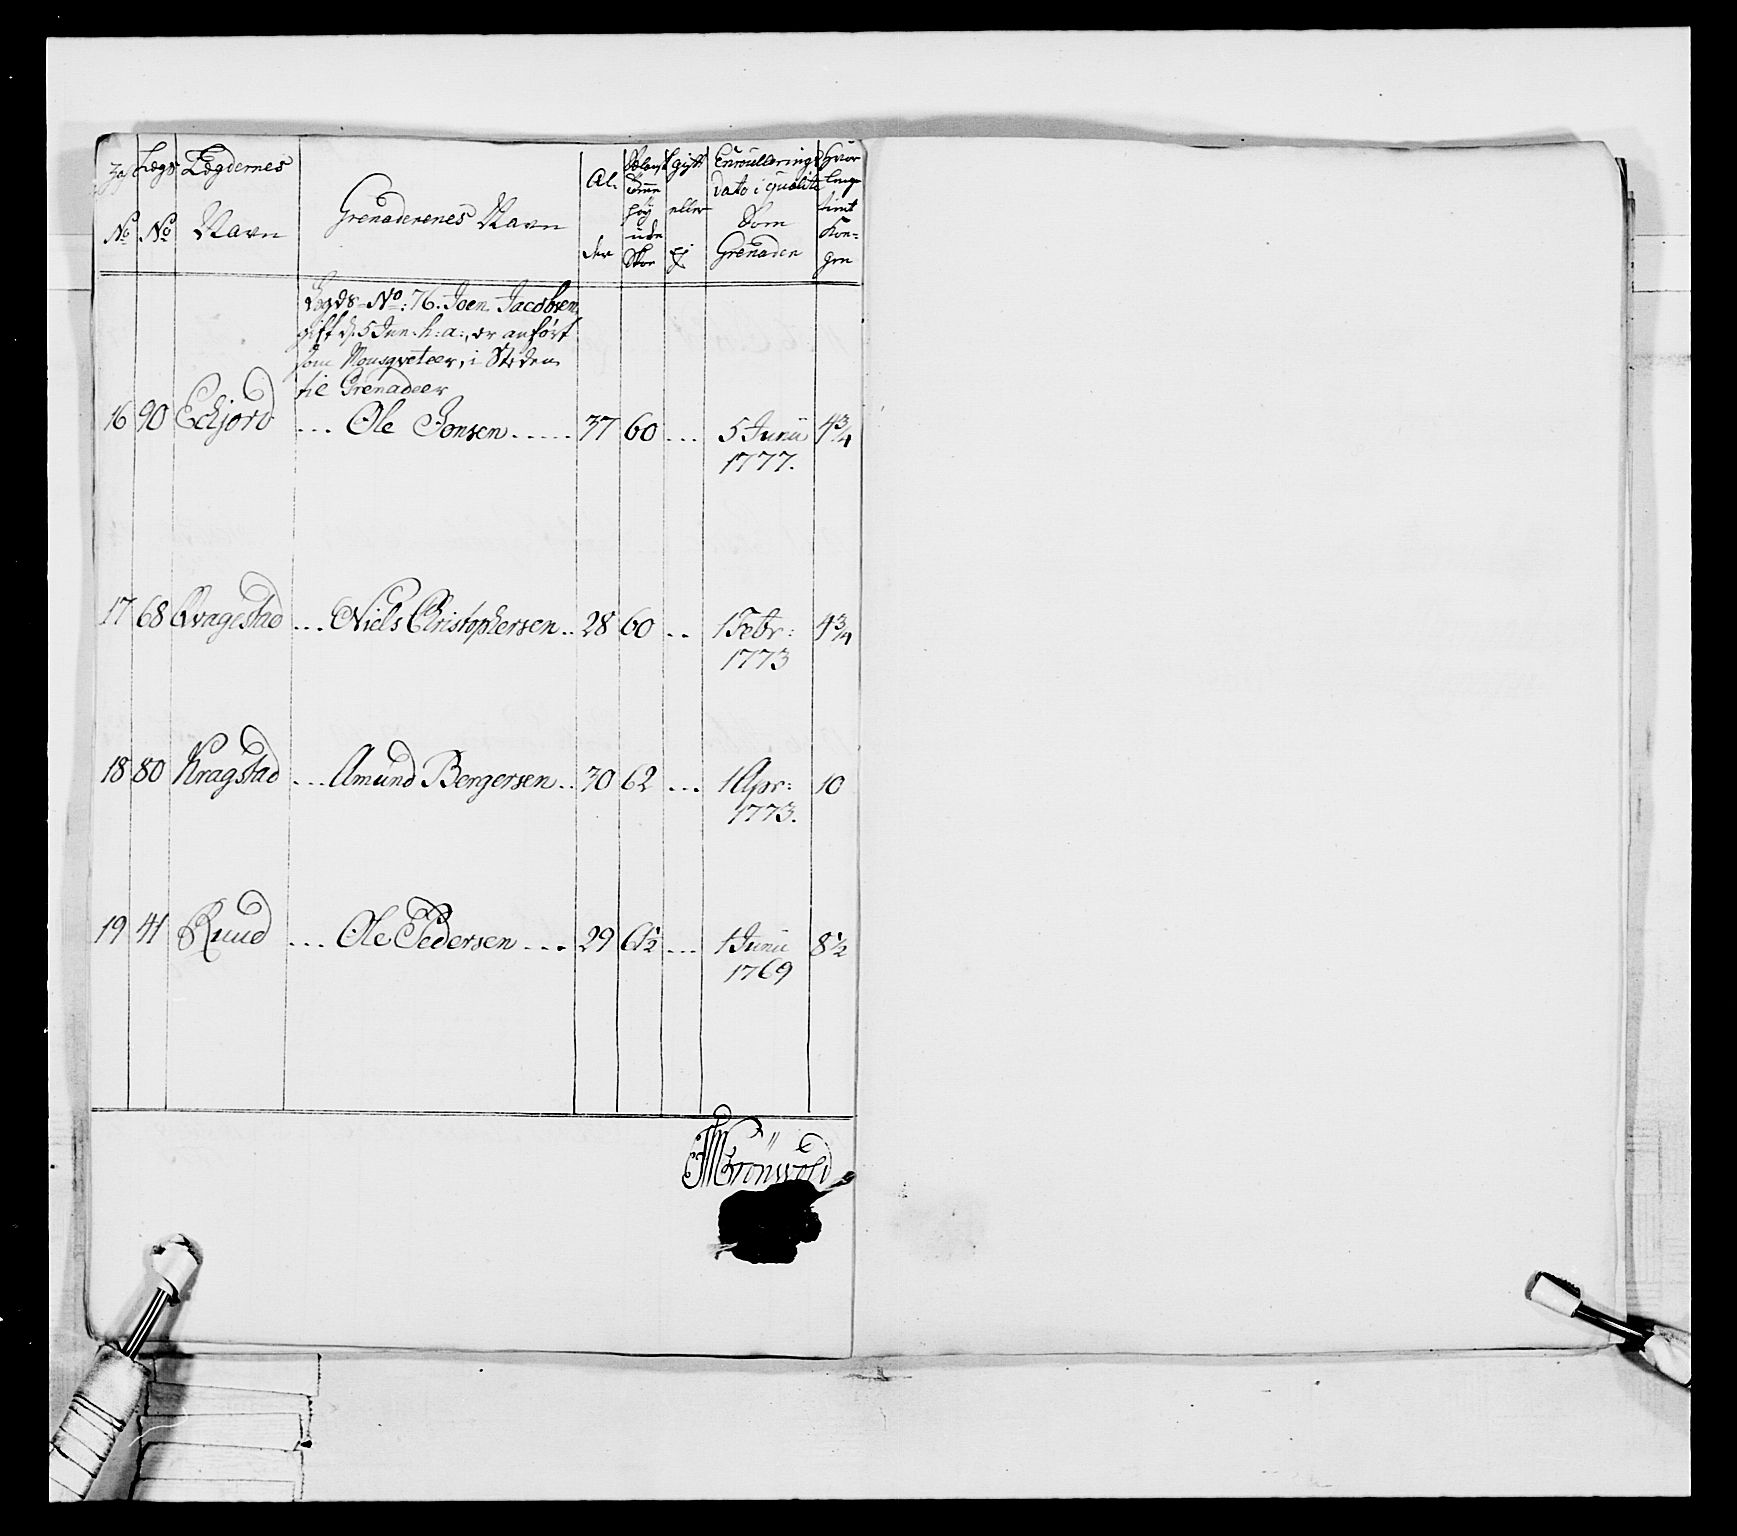 No
Lægds No
Lægdernes Navn
Grenaderenes Navn
Al- der
høy uden Skoe
gift eller Ej
Enroullerings Dato i qualite Som Grenader
Hvor lenge tient Kon- gen
Lægds No: 76. Joen Jacobsen
gift d. 5 Jun. h: a:, er anført
som Mousqveteer, i Steden
til Grenadeer
16 90 Eckjord ... Ole Jonsen ..... 37 60 ... 5 Junii 4 3/4
1777.
17 68 Qvagestad ... Niels Christophersen .. 28 60 .. 1 Febr: 4 3/4
1773
18 80 Kragstad ... Amund Bergersen .. 30 62 ... 1 Apr: 10
1773.
19 41 Ruud ... Ole Pedersen .... 29 61/2 ... 1 Junii 8 1/2
1769
Grönvold